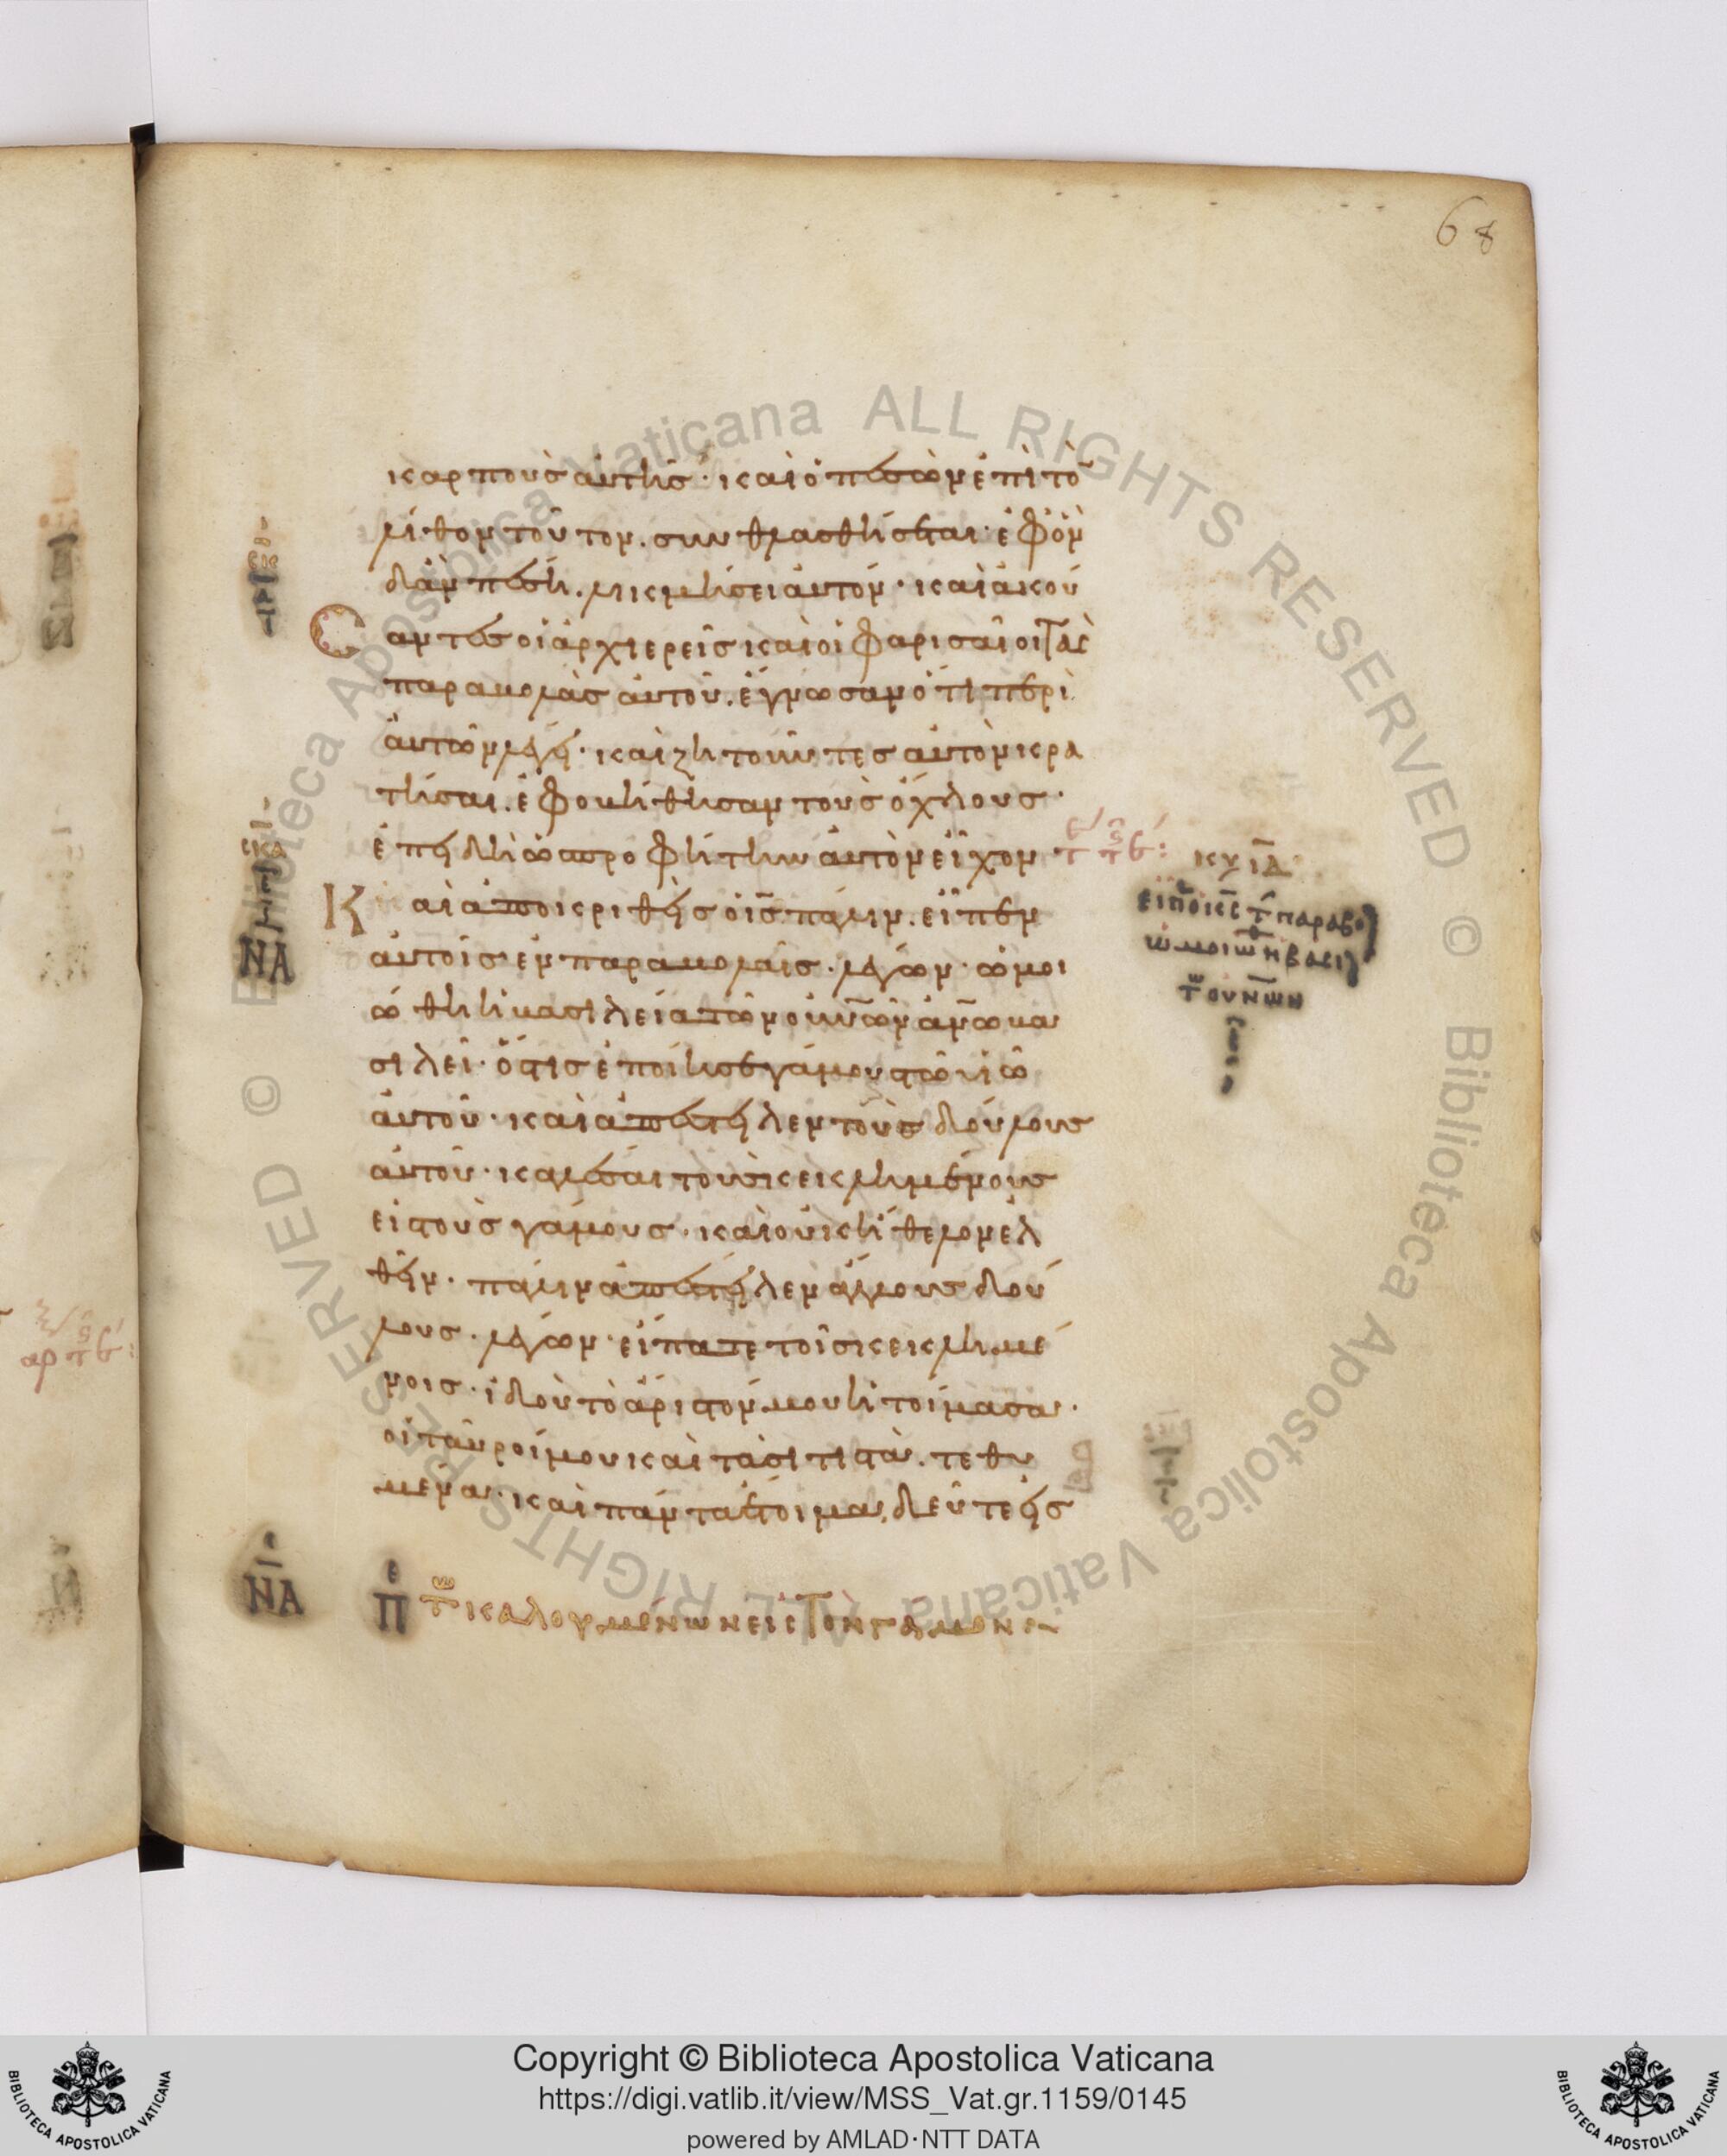 68
καρποὺς αὐτῆς· καὶ ὁ πεσὼν ἐπὶ τὸ
λίθον τοῦτον. συνθλασθήσεται· ἐφ ὃν
δἂν πέσῃ. λικμήσει αὐτόν· καὶ ἀκού
σαντες οἱ ἀρχιερεῖς καὶ οἱ φαρισαῖοι τὰς
παραβολὰς αὐτοῦ. ἔγνωσαν ὅτι περὶ
αὐτῶν λέγει· καὶ ζητοῦντες αὐτὸν κρα
τῆσαι. ἐφοβήθησαν τοὺς ὄχλους·
ἐπειδὴ ὡς προφήτην αὐτὸν εἶχον·
Καὶ ἀποκριθεὶς ὁ ις πάλιν. εἶπεν
αὐτοῖς ἐν παραβολαῖς. λέγων· ὡμοι
ώθη ἡ βασιλεία τῶν οὐνῶν ἀνω βα
σιλεῖ· ὅστις ἐποίησε γάμους τῶ υἱῶ
αὐτοῦ· καὶ ἀπέστειλεν τοὺς δούλους
αὐτοῦ· καλέσαι τοὺς κεκλημένους
εἰς τοὺς γάμους· καὶ οὐκ ἤθελον ἐλ
θεῖν. πάλιν ἀπέστειλεν ἄλλους δού
λους. λέγων· εἴπατε τοῖς κεκλημέ
νοις· ἰδοὺ τὸ ἄριστόν μου ἡτοίμασα·
οἱ ταῦροί μου καὶ τὰ σιτιστὰ. τεθυ
μένα· καὶ πάντα ἕτοιμα, δεῦτε εἰς
ΝΑ
κυ ΙΔ
ΝΑ Πε τῶ καλουμένων εἰς Τὸν γάμον
Copyright © Biblioteca Apostolica Vaticana
https://digi.vatlib.it/view/MSS_Vat.gr.1159/0145
powered by AMLAD·NTT DATA
BIBLIOTECA APOSTOLICA VATICANA
BIBLIOTECA APOSTOLICA VATICANA
Biblioteca Apostolica Vaticana ALL RIGHTS RESERVED © Biblioteca Apostolica Vaticana ALL RIGHTS RESERVED ©